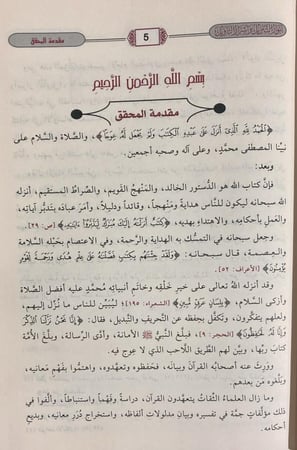 مقدمة المحقق
5
بسم الله الرحمن الرحيم
مقدمة المحقق
﴿الْحَمْدُ لِلَّهِ الَّذِي أَنزَلَ عَلَى عَبْدِهِ الْكِتَابَ وَلَمْ يَجْعَل لَّهُ عِوَجًا﴾، والصَّلاة والسَّلام على
نبيِّنا المصطفى محمَّدٍ، وعلى آله وصحبه أجمعين.
وبعد:
فإنَّ كتابَ الله هو الدُّستور الخالد، والمنْهجُ القويم، والصِّراطُ المستقيم، أنزله
الله سبحانه ليكون للنَّاس هدايةً ومَنْهجاً، وقائداً ودليلاً، وأمَرَ عبادَه بتدبُّر آياته،
والعملِ بأحكامِه، والاهتداءِ بهديه، ﴿كِتَابٌ أَنزَلْنَاهُ إِلَيْكَ مُبَارَكٌ لِّيَدَّبَّرُوا آيَاتِهِ﴾ [ص: ٢٩].
وجعل سبحانه في التمسُّك به الهدايةَ والرَّحمة، وفي الاعتصامِ بحَبْله السلامةَ
والعِصمة، قال سبحانه: ﴿وَلَقَدْ جِئْنَاهُم بِكِتَابٍ فَصَّلْنَاهُ عَلَى عِلْمٍ هُدًى وَرَحْمَةً لِّقَوْمٍ
يُؤْمِنُونَ﴾ [الأعراف: ٥٢].
وقد أنزله اللهُ تعالى على خيرِ خَلْقه وخاتمِ أنبيائه محمَّدٍ عليه أفضل الصلاة
وأزكى السلام، ﴿بِلِسَانٍ عَرَبِيٍّ مُّبِينٍ﴾ [الشعراء: ١٩٥]؛ ليُبيِّن للنَّاس ما نُزِّل إليهم،
ولعلهم يتفكَّرون، وتكفَّل بحِفظه عن التحريفِ والتبديل، فقال: ﴿إِنَّا نَحْنُ نَزَّلْنَا الذِّكْرَ
وَإِنَّا لَهُ لَحَافِظُونَ﴾ [الحجر: ٩]، فبلَّغ النَّبيُّ ﷺ الأمانة، وأدَّى الرسالة، وبلَّغ الأمَّة
كتابَ ربِّها، وبيَّن لهم الطريق اللاحب الذي لا عِوج فيه.
وورِث عنه أصحابُه القرآنَ وبيانَه، فحَفِظوه وتعهَّدوه، واهتمُّوا بفَهْم معانيه،
وبلَّغوه مَن بعدَهم.
وما زال العلماءُ الثِّقاتُ يتعهَّدون القرآن، دراسةً وفَهْماً واستنباطاً، وألَّفوا في
ذلك مؤلَّفاتٍ جمَّة في تفسيرِه وبيانِ مدلولاتِ ألفاظه، واستخراج دُرَر معانيه، وبديعِ
أحكامه.